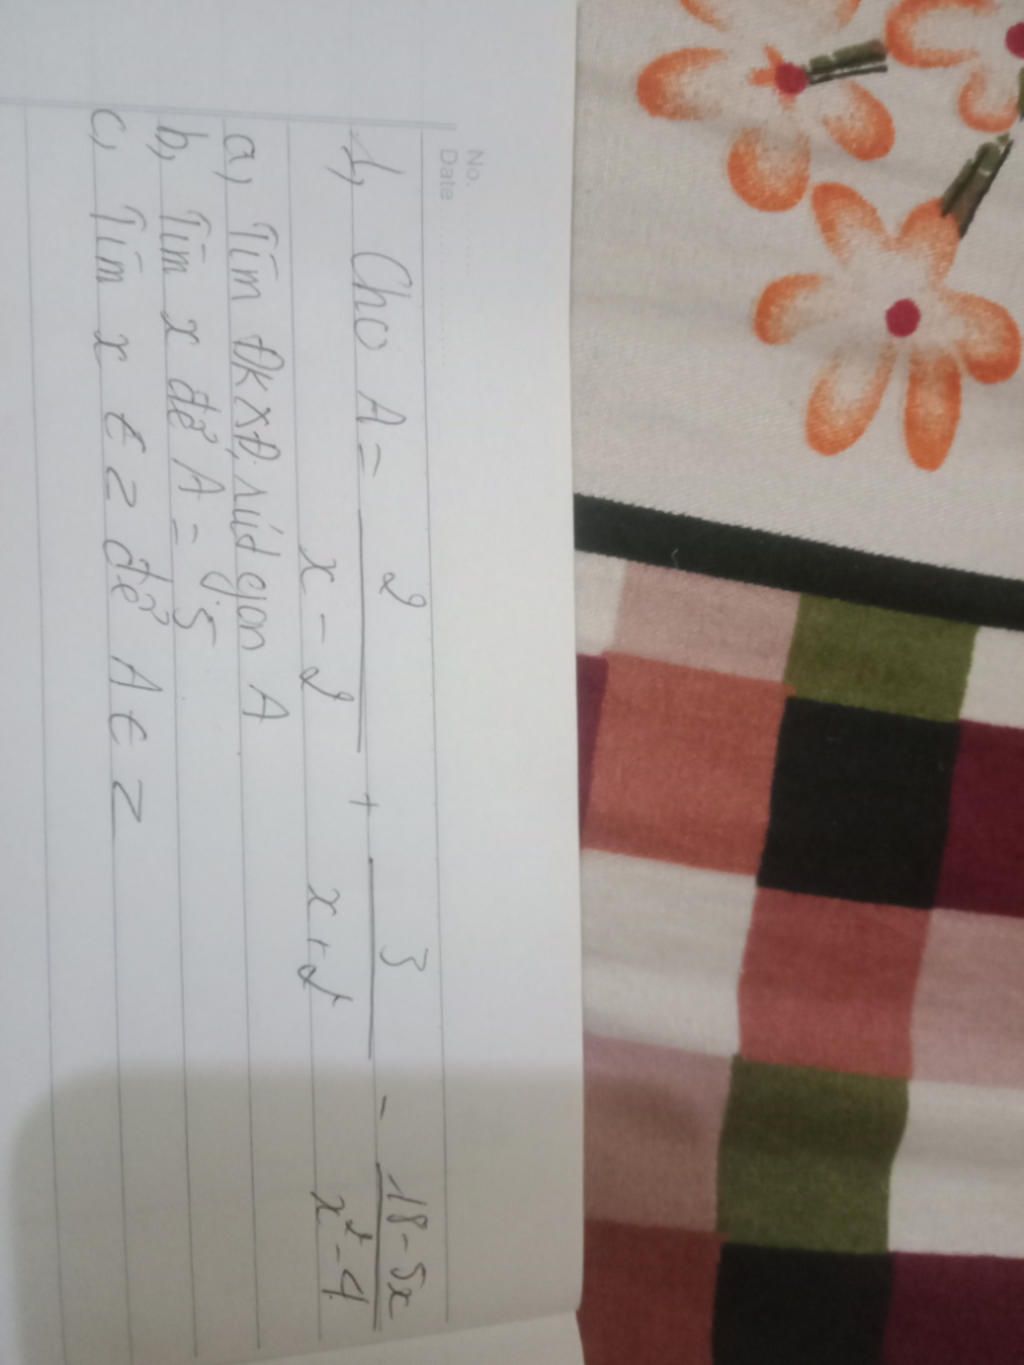 No.
Date
1, Cho A = 2/(x - 2) + 3/(x + 2) - (18 - 5x)/(x² - 4)
a, Tìm ĐKXĐ, rút gọn A
b, Tìm x để A = 0,5
c, Tìm x ∈ Z để A ∈ Z